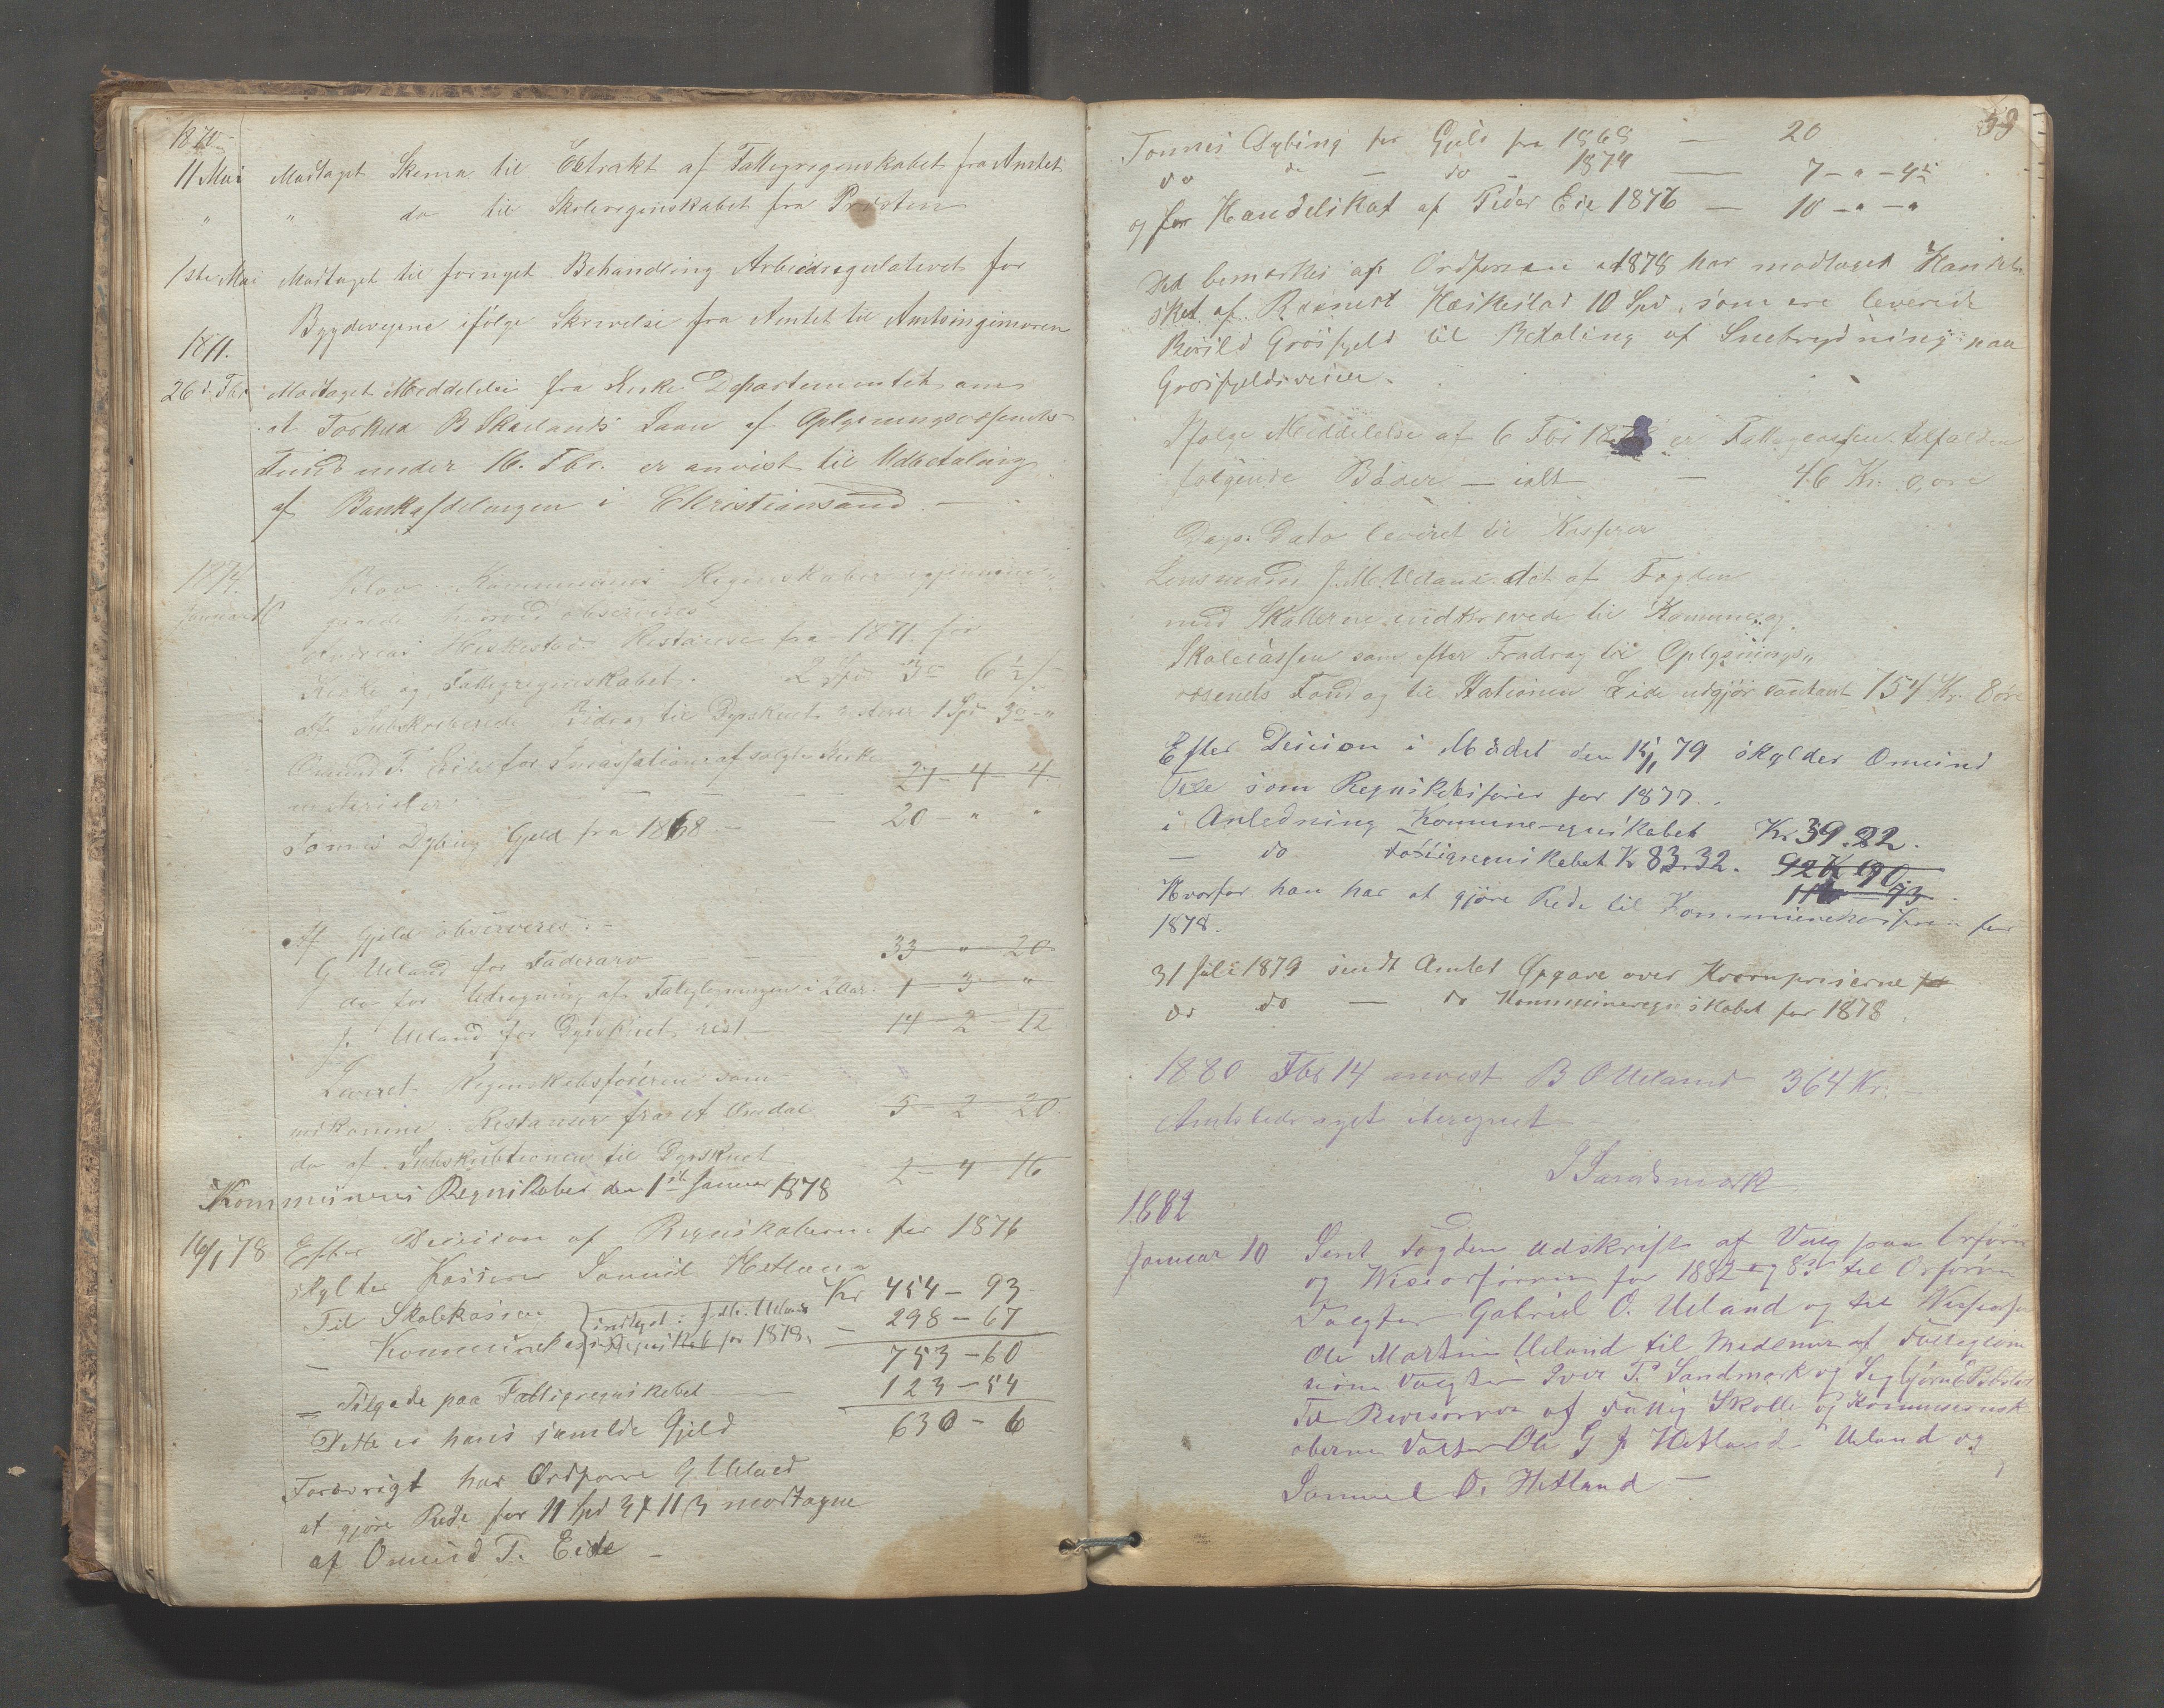 1871
11 Mai Modtaget Skema til Extrakt af Fattigregnskabet fra Amtet
" " do til Skoleregnskabet fra Provsten
1ste Mai Modtaget til fornyet Behandling Arbeidsregulativet for
Bygdeveiene ifølge Skrivelse fra Amtet til Amtsingeniøren
1871.
26 d. Fbr Modtaget Meddelelse fra Kirke Departementet om
at Torkild B Skaalands Laan af Oplysningsvæsenets
Fund under 16. Fbr. er anvist til Udbetaling
af Bankafdelingen i Christiansand. —
1874.
Januar Kommunens Regnskaber
observeres
Andreas Heskestads Restanse fra 1871 for
Kirke og Fattigregnskabet. 2 Spd 3 6½
Subskriberede Bidrag til Dyrskuet 1 Spd 3 "
Omund T. Eide for af solgte Kirke
materialer — — — 27 - 4 - 4
Tønnes Dybing Gjeld fra 1868 — — 20 - " - "
Af Gjeld observeres: -
G Ueland for Faderarv — 33 - " - 20
do for Udregning af Fatligningen i 2 Aar. 1 - 3 - "
J. Ueland for Dyrskuet rest — 14 - 2 - 12
Leveret Regnskabsføreren som
Restanser fra A Omdal 5 - 2 - 20
do af Subskribtionen til Dyrskuet 2 - 4 - 16
Kommunens Regnskaber den 1ste Januar 1878
16/1 78 Efter Decision af Regnskaberne for 1876
skylder Kasserer Samuel Hetland
Til Skolekassen Kr 454 - 93
— Kommunekassen indtaget i J. M. Uelands Regnskab for 1878. — 298 - 67
753 - 60
= Tilgode paa Fattigregnskabet — 123 - 54
Dette er hans samlde Gjeld 630 - 6
Forøvrigt har Ordfører G. Ueland
at gjøre Rede for 11 Spd 3 11 modtagne
af Omund T. Eide —
59
Tønnes Dybing for Gjeld fra 1868 — 20
do do — do - 1874 — 7 - " - 4
og for Handelskat af Peder Eie 1876 — 10 - " - "
Det bemerkes at Ordføreren 1878 har modtaget Handels
skat af Rasmus Heskestad 10 Spd, som ere leverede
Bertild Grøsfjeld til Betaling af Snebrydning paa
Grøsfjeldsveien.
Ifølge Meddelelse af 6 Fbr 187 er Fattigcassen tilfalden
følgende Bøder — ialt — 46 Kr. 0 øre
Dags Dato leveret til Kasserer
Lensmand J. M. Ueland det af Fogden
med Skatterne indkrevede til Kommune og
Skolecassen som efter Fradrag til Oplysnings"
vesenets Fond og til Stationen Eide udgjør contant 154 Kr. 8 øre
Efter Decision i Mødet den 79 skylder Omund
Eide som Regnskabsfører for 1877.
i Anledning Kommuneregnskabet Kr 39.82.
— do Fattigregnskabet Kr 83.32. 92 K 90
Hvorfor han har at gjøre Rede til Kommunekassen for
1878.
31 Juli 1879 sendt Amtet Opgave over Kornpriserne for
do do — do Kommuneregnskabet for 1878.
1880 Fbr 14 anvist B O Ueland 364 Kr.
Amtsbedraget iberegnet
J Sandsmark
1882
Januar 10 Sent Fogden Udskrift af Valg paa Orfører
og Viseorfører for 1882 og 83 til Orfører
Valgtes Gabriel O. Ueland og til Viseorfører
Ole Martin Ueland til Medlemer af Fattigkom
isionen Valgtes Iver P. Sandmark og Sigbjørn
Til Revisorer af Fattig Skolle og Komuneregnsk
aberne Valtes Ole G J Hetland Ueland og
Samuel O. Hetland —